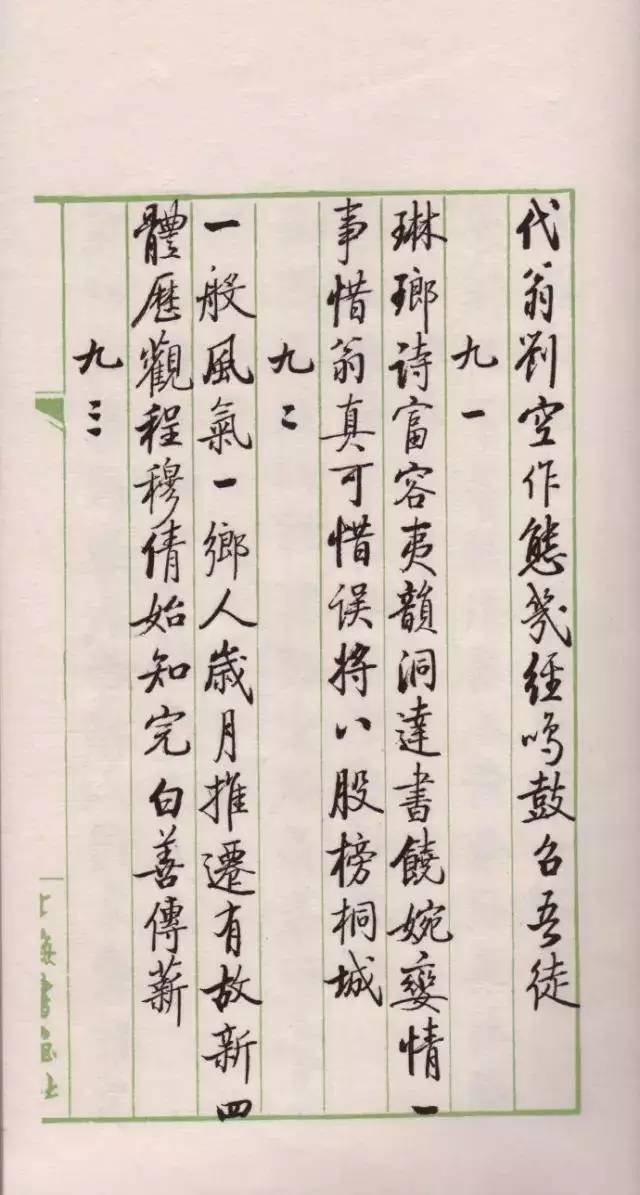 代翁刘空作態幾经鸣鼓召吾徒
九一
琳瑯诗富容夷韻洞達書饒婉孌情一
事惜翁真可惜误将八股榜桐城
九二
一般風氣一鄉人歳月推遷有故新四
體歷觀程穆倩始知完白善傳薪
九三
上海書画社